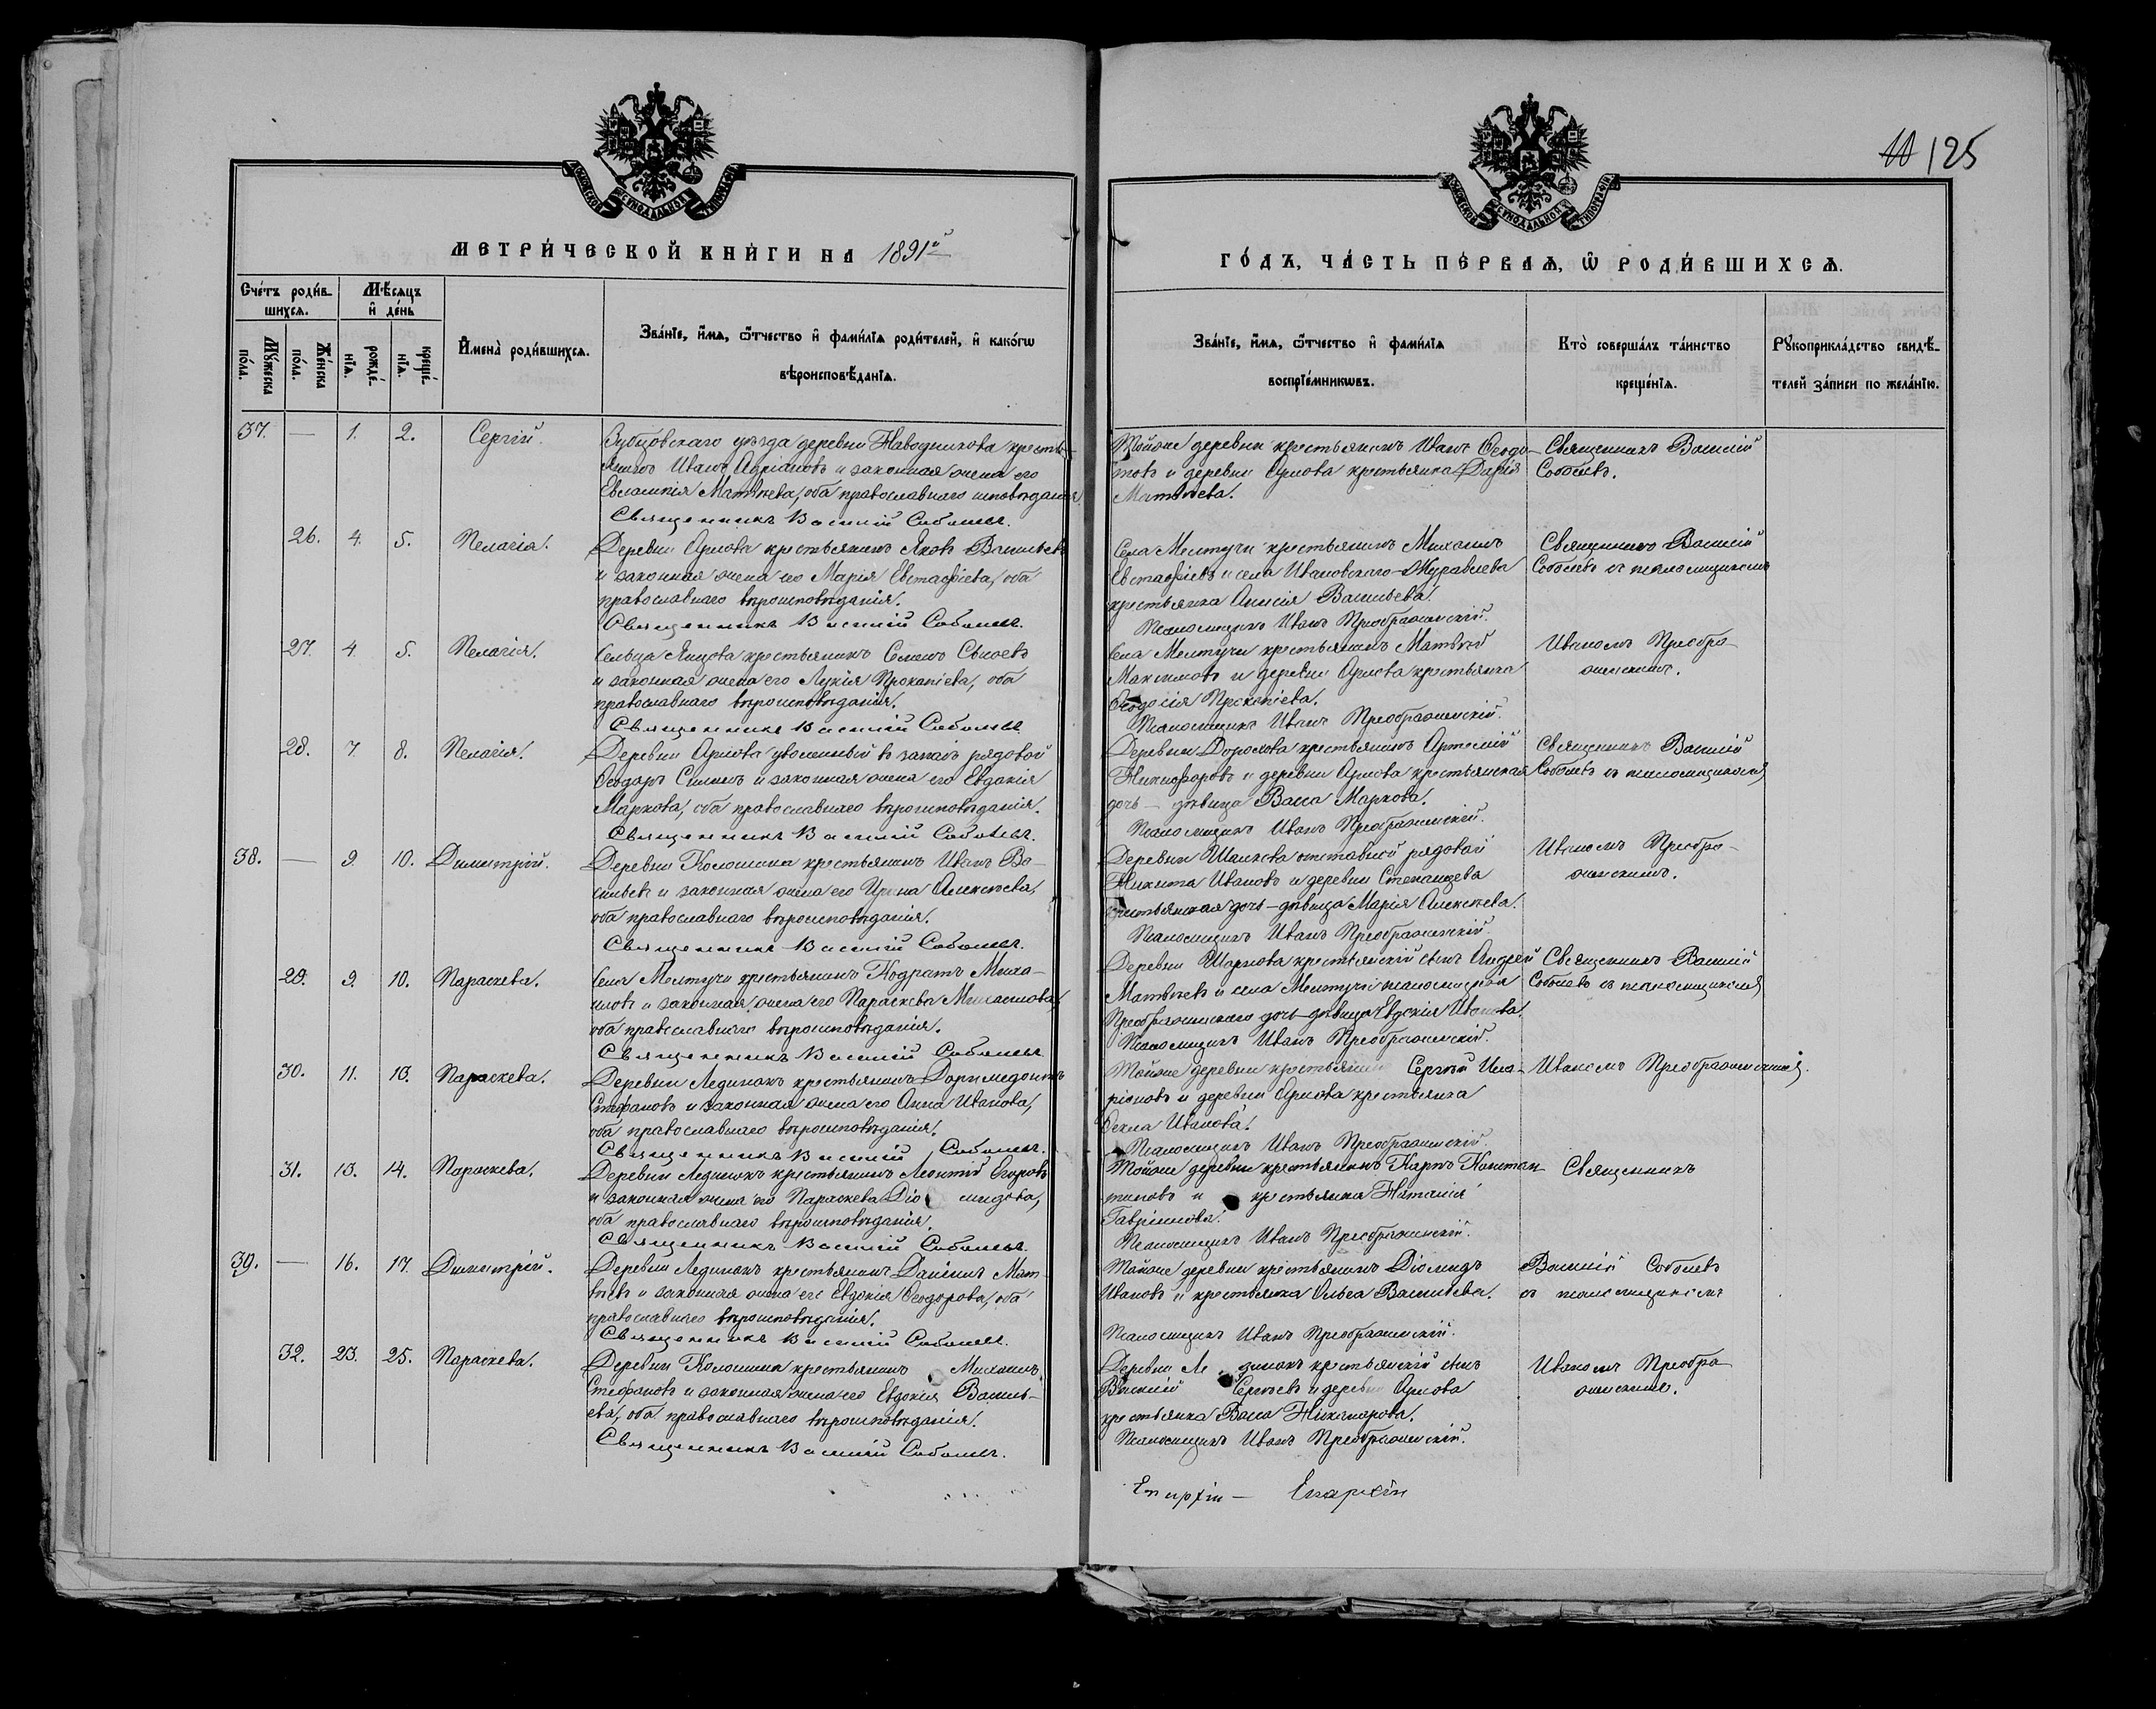 125
МОСКОВСКОЙ СУНОДАЛЬНОЙ ТИПОГРАФІИ
МОСКОВСКОЙ СУНОДАЛЬНОЙ ТИПОГРАФІИ
МЕТРИ́ЧЕСКОЙ КНИ́ГИ НА 1891й
ГО́ДЪ, ЧА́СТЬ ПЕ́РВАѦ, Ѿ РОДИ́ВШИХСѦ.
Сче́тъ роди́в-
шихсѧ.
Мꙋ́жеска
по́ла.
Же́нска
по́ла.
Мѣ́сѧцъ
и҆ де́нь
рожде́-
нїѧ.
креще́-
нїѧ.
И҆мена̀ роди́вшихсѧ.
Зва́нїе, и҆́мѧ, ѻ҆́тчество и҆ фами́лїѧ роди́телей, и҆ како́гѡ
вѣроисповѣ́данїѧ.
Зва́нїе, и҆́мѧ, ѻ҆́тчество и҆ фами́лїѧ
воспрїе́мникѡвъ.
Кто̀ соверша́лъ та́инство
креще́нїѧ.
Рꙋкоприкла́дство свидѣ́-
телей за́писи по жела́нїю.
37. — 1. 2. Сергій.
Зубцовскаго уѣзда деревни Наводникова кресть-
янинъ Иванъ Адріановъ и законная жена его
Евлампія Матвѣева, оба православнаго исповѣданія
Священникъ Василій Соболевъ.
Тойже деревни крестьянинъ Иванъ Ѳедо-
товъ и деревни Орлова крестьянка Дарія
Матвѣева.
Священникъ Василій
Соболевъ.
26. 4. 5. Пелагія.
Деревни Орлова крестьянинъ Яковъ Васильевъ
и законная жена его Марія Евстафіева, оба
православнаго вѣроисповѣданія.
Священникъ Василій Соболевъ.
Села Мелтучи крестьянинъ Михаилъ
Евстафіевъ и села Ивановскаго-Журавлева
крестьянка Анисія Васильева.
Псаломщикъ Иванъ Преображенскій.
Священникъ Василій
Соболевъ съ псаломщикомъ
27. 4. 5. Пелагія.
Сельца Яицова крестьянинъ Семенъ Сысоевъ
и законная жена его Лукія Прокопіева, оба
православнаго вѣроисповѣданія.
Священникъ Василій Соболевъ
Села Мелтучи крестьянинъ Матвѣй
Максимовъ и деревни Орлова крестьянка
Ѳеодосія Прокопіева.
Псаломщикъ Иванъ Преображенскій.
Иваномъ Преобра-
женскимъ.
28. 7. 8. Пелагія.
Деревни Орлова уволенный въ запасъ рядовой
Ѳеодоръ Симонъ и законная жена его Евдокія
Маркова, оба православнаго вѣроисповѣданія.
Священникъ Василій Соболевъ.
Деревни Дорохова крестьянинъ Артемій
Никифоровъ и деревни Орлова крестьянская
дочь - дѣвица Васса Маркова.
Псаломщикъ Иванъ Преображенскій.
Священникъ Василій
Соболевъ съ псаломщикомъ
38. — 9. 10. Димитрій.
Деревни Колошина крестьянинъ Иванъ Ва-
сильевъ и законная жена его Ирина Алексѣева,
оба православнаго вѣроисповѣданія.
Священникъ Василій Соболевъ.
Деревни отставной рядовой
Никита Ивановъ и деревни
крестьянская дочь - дѣвица Марія Алексѣева.
Псаломщикъ Иванъ Преображенскій.
Иваномъ Преобра-
женскимъ.
29. 9. 10. Параскева.
Села Мелтучи крестьянинъ Кодратъ Миха-
иловъ и законная жена его Параскева Михаилова,
оба православнаго вѣроисповѣданія.
Священникъ Василій Соболевъ
Деревни Шаркова крестьянскій сынъ Андрей
Матвѣевъ и села Мелтучи псаломщика
Преображенскаго дочь-дѣвица Евдокія Иванова.
Псаломщикъ Иванъ Преображенскій.
Священникъ Василій
Соболевъ съ псаломщикомъ
30. 11. 13. Параскева.
Деревни Лединокъ крестьянинъ Доримедонтъ
Стефановъ и законная жена его Анна Иванова,
оба православнаго вѣроисповѣданія.
Священникъ Василій Соболевъ.
Тойже деревни крестьянинъ Сергѣй Ила-
ріоновъ и деревни Орлова крестьянка
Ѳекла Иванова.
Псаломщикъ Иванъ Преображенскій.
Иваномъ Преображенскимъ.
31. 13. 14. Параскева.
Деревни Лединокъ крестьянинъ Леонтій Егоровъ
и законная жена его Параскева Діо мидова,
оба православнаго вѣроисповѣданія.
Священникъ Василій Соболевъ.
Тойже деревни крестьянинъ Карпъ Констан-
тиновъ и крестьянка Наталія
Гавріилова.
Псаломщикъ Иванъ Преображенскій.
Священникъ
39. — 16. 17. Димитрій.
Деревни Лединокъ крестьянинъ Даніилъ Мат-
вѣевъ и законная жена его Евдокія Ѳеодорова, оба
православнаго вѣроисповѣданія.
Священникъ Василій Соболевъ.
Тойже деревни крестьянинъ Діомидъ
Ивановъ и крестьянка Ольга Васильева.
Псаломщикъ Иванъ Преображенскій.
Василій Соболевъ
съ псаломщикомъ
32. 23. 25. Параскева.
Деревни Колошина крестьянинъ Михаилъ
Стефановъ и законная жена его Евдокія Василь-
ева, оба православнаго вѣроисповѣданія.
Священникъ Василій Соболевъ.
Деревни Ле динокъ крестьянскій сынъ
Василій Сергѣевъ и деревни Орлова
крестьянка Васса Никанорова.
Псаломщикъ Иванъ Преображенскій.
Иваномъ Преобра-
женскимъ.
Епархіи — Епархіи